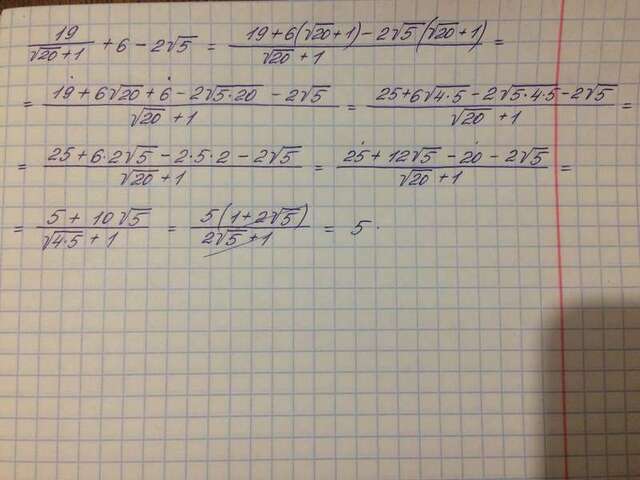 19/(√20+1) + 6 - 2√5 = (19+6(√20+1) - 2√5(√20+1))/(√20+1) =
= (19+6√20+6 - 2√5·20 - 2√5)/(√20+1) = (25+6√4·5 - 2√5·4·5 - 2√5)/(√20+1) =
= (25+6·2√5 - 2·5·2 - 2√5)/(√20+1) = (25+12√5 - 20 - 2√5)/(√20+1) =
= (5+10√5)/(√4·5+1) = 5(1+2√5)/(2√5+1) = 5.